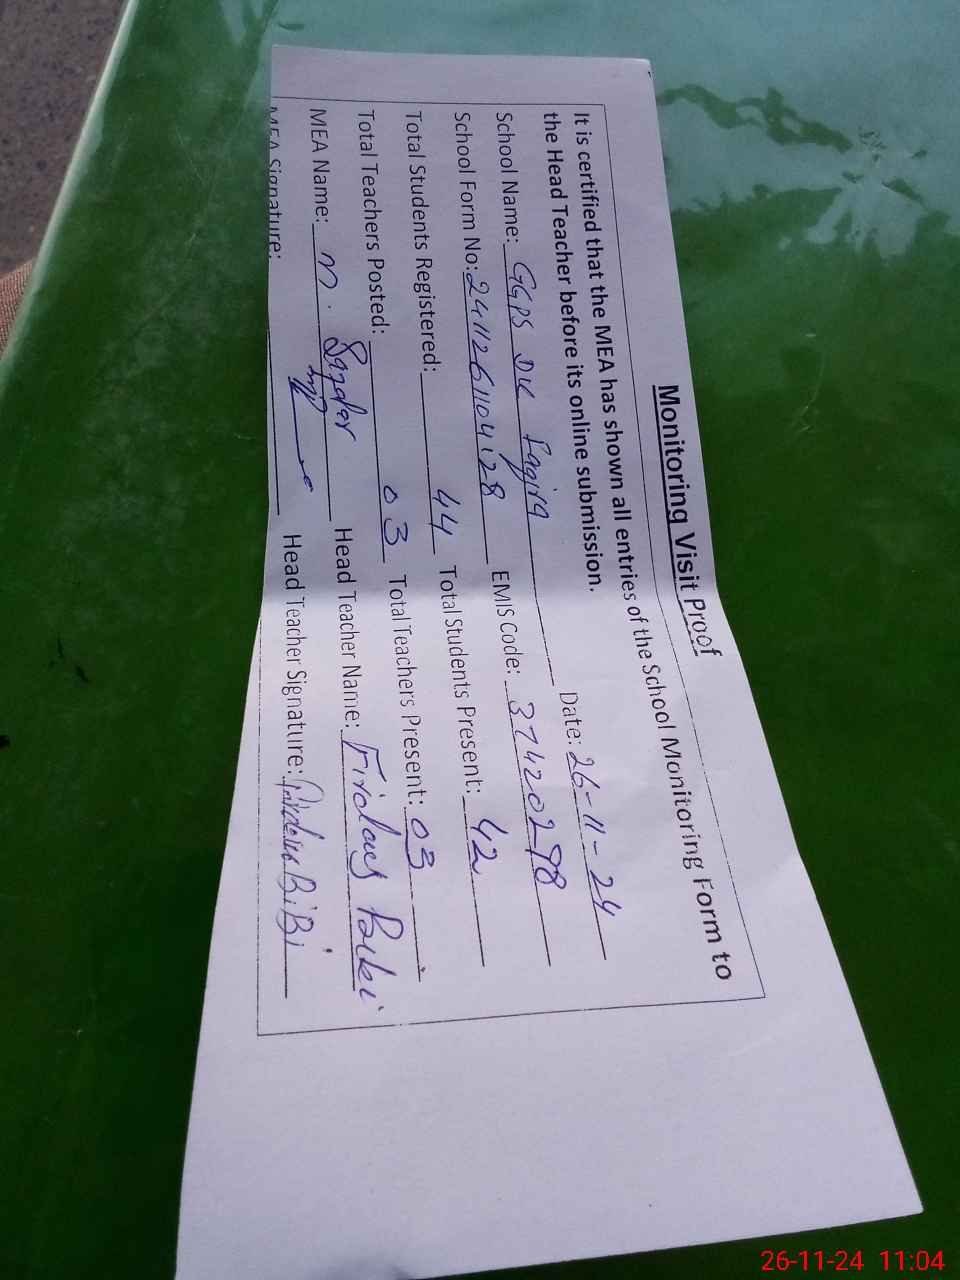 Monitoring Visit Proof
It is certified that the MEA has shown all entries of the School Monitoring Form to
the Head Teacher before its online submission.
School Name: GGPS DK Date: 26-11-24
School Form No: 2411261104128 EMIS Code: 37420298
Total Students Registered: 44 Total Students Present: 42
Total Teachers Posted: 03 Total Teachers Present: 03
MEA Name: M. Head Teacher Name: Firdous Bibi
MEA Signature: Head Teacher Signature: Firdous BiBi
26-11-24 11:04